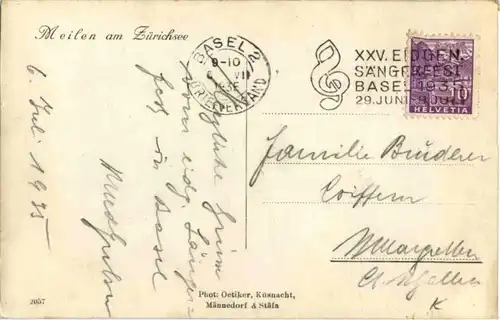 Meilen am Zürichsee
BASEL 2
9-10
1935
BRIEFVERSAND
XXV. EIDGEN.
SÄNGERFEST
BASEL 1935
29. JUNI-9. JULI
10
HELVETIA
6. Juli 1935
Herzliche Grüsse
vom eidg. Sänger-
fest in Basel
Familie Bruderer
Coiffeur
St. Gallen
Phot: Oetiker, Küsnacht,
Männedorf & Stäfa
2057
K